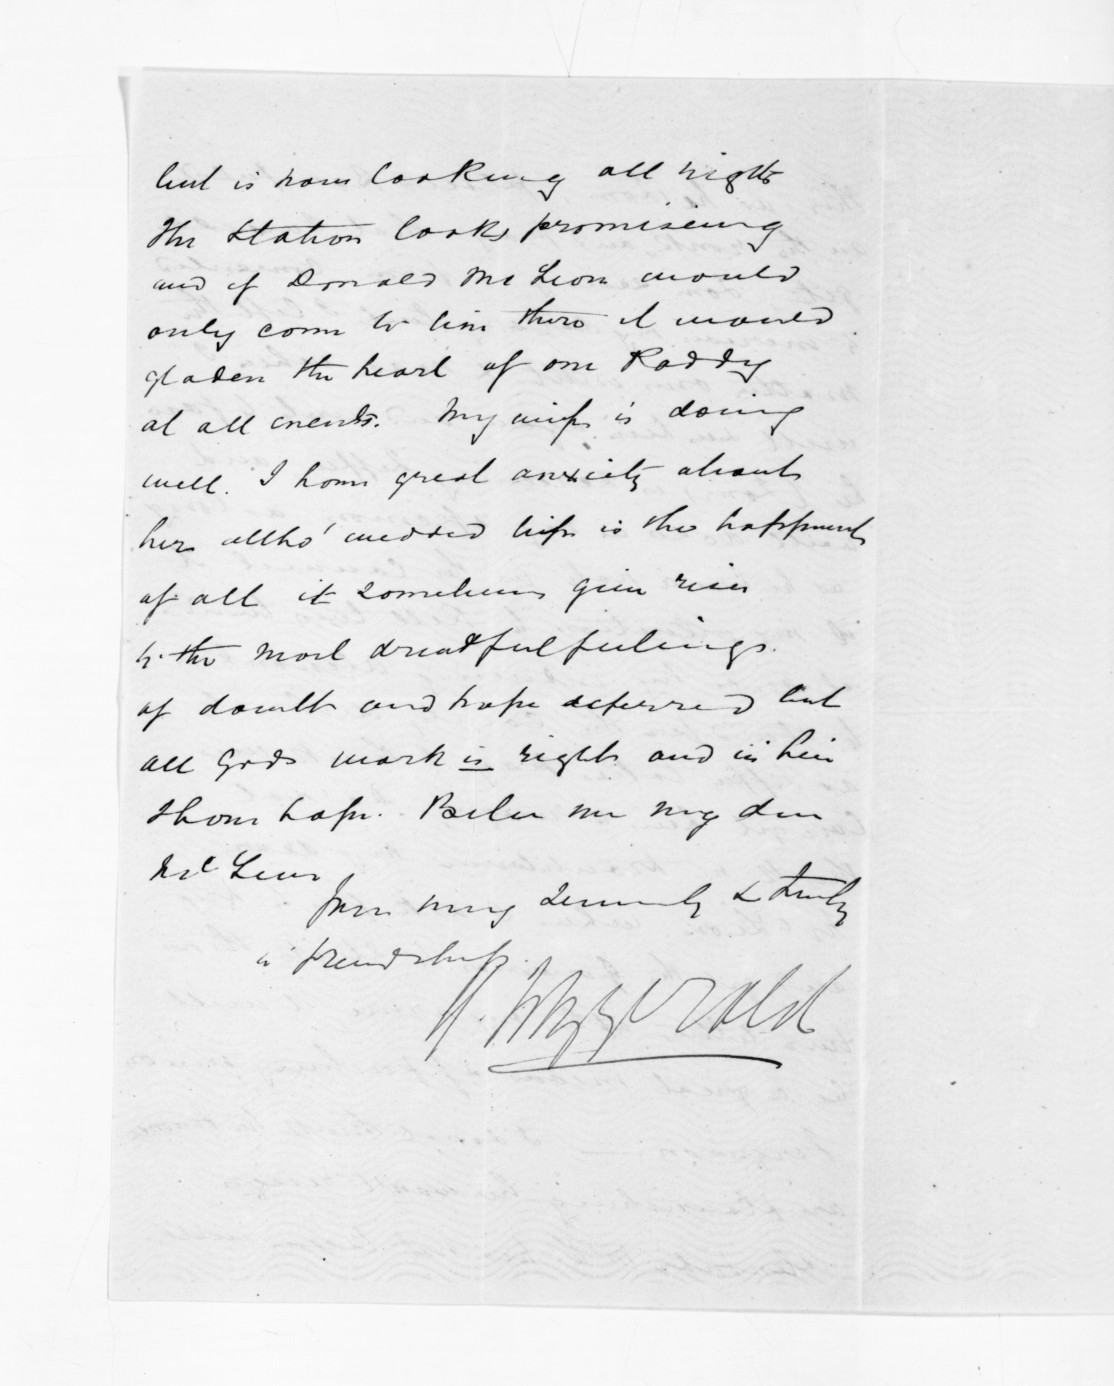 but is now looking all right
The Station looks promising
and if Donald McLean would
only come to live there it would
gladen the heart of one Paddy
at all events. My wife is doing
well. I have great anxiety about
her altho' wedded life is the happiest
of all it sometimes give rise
to the most dreadful feelings.
of doubt and hope deferred but
all Gods work is right and in him
I have hope. Believe me my dear
McLean
Yours very sincerely & truly
in friendship.
Fitzgerald